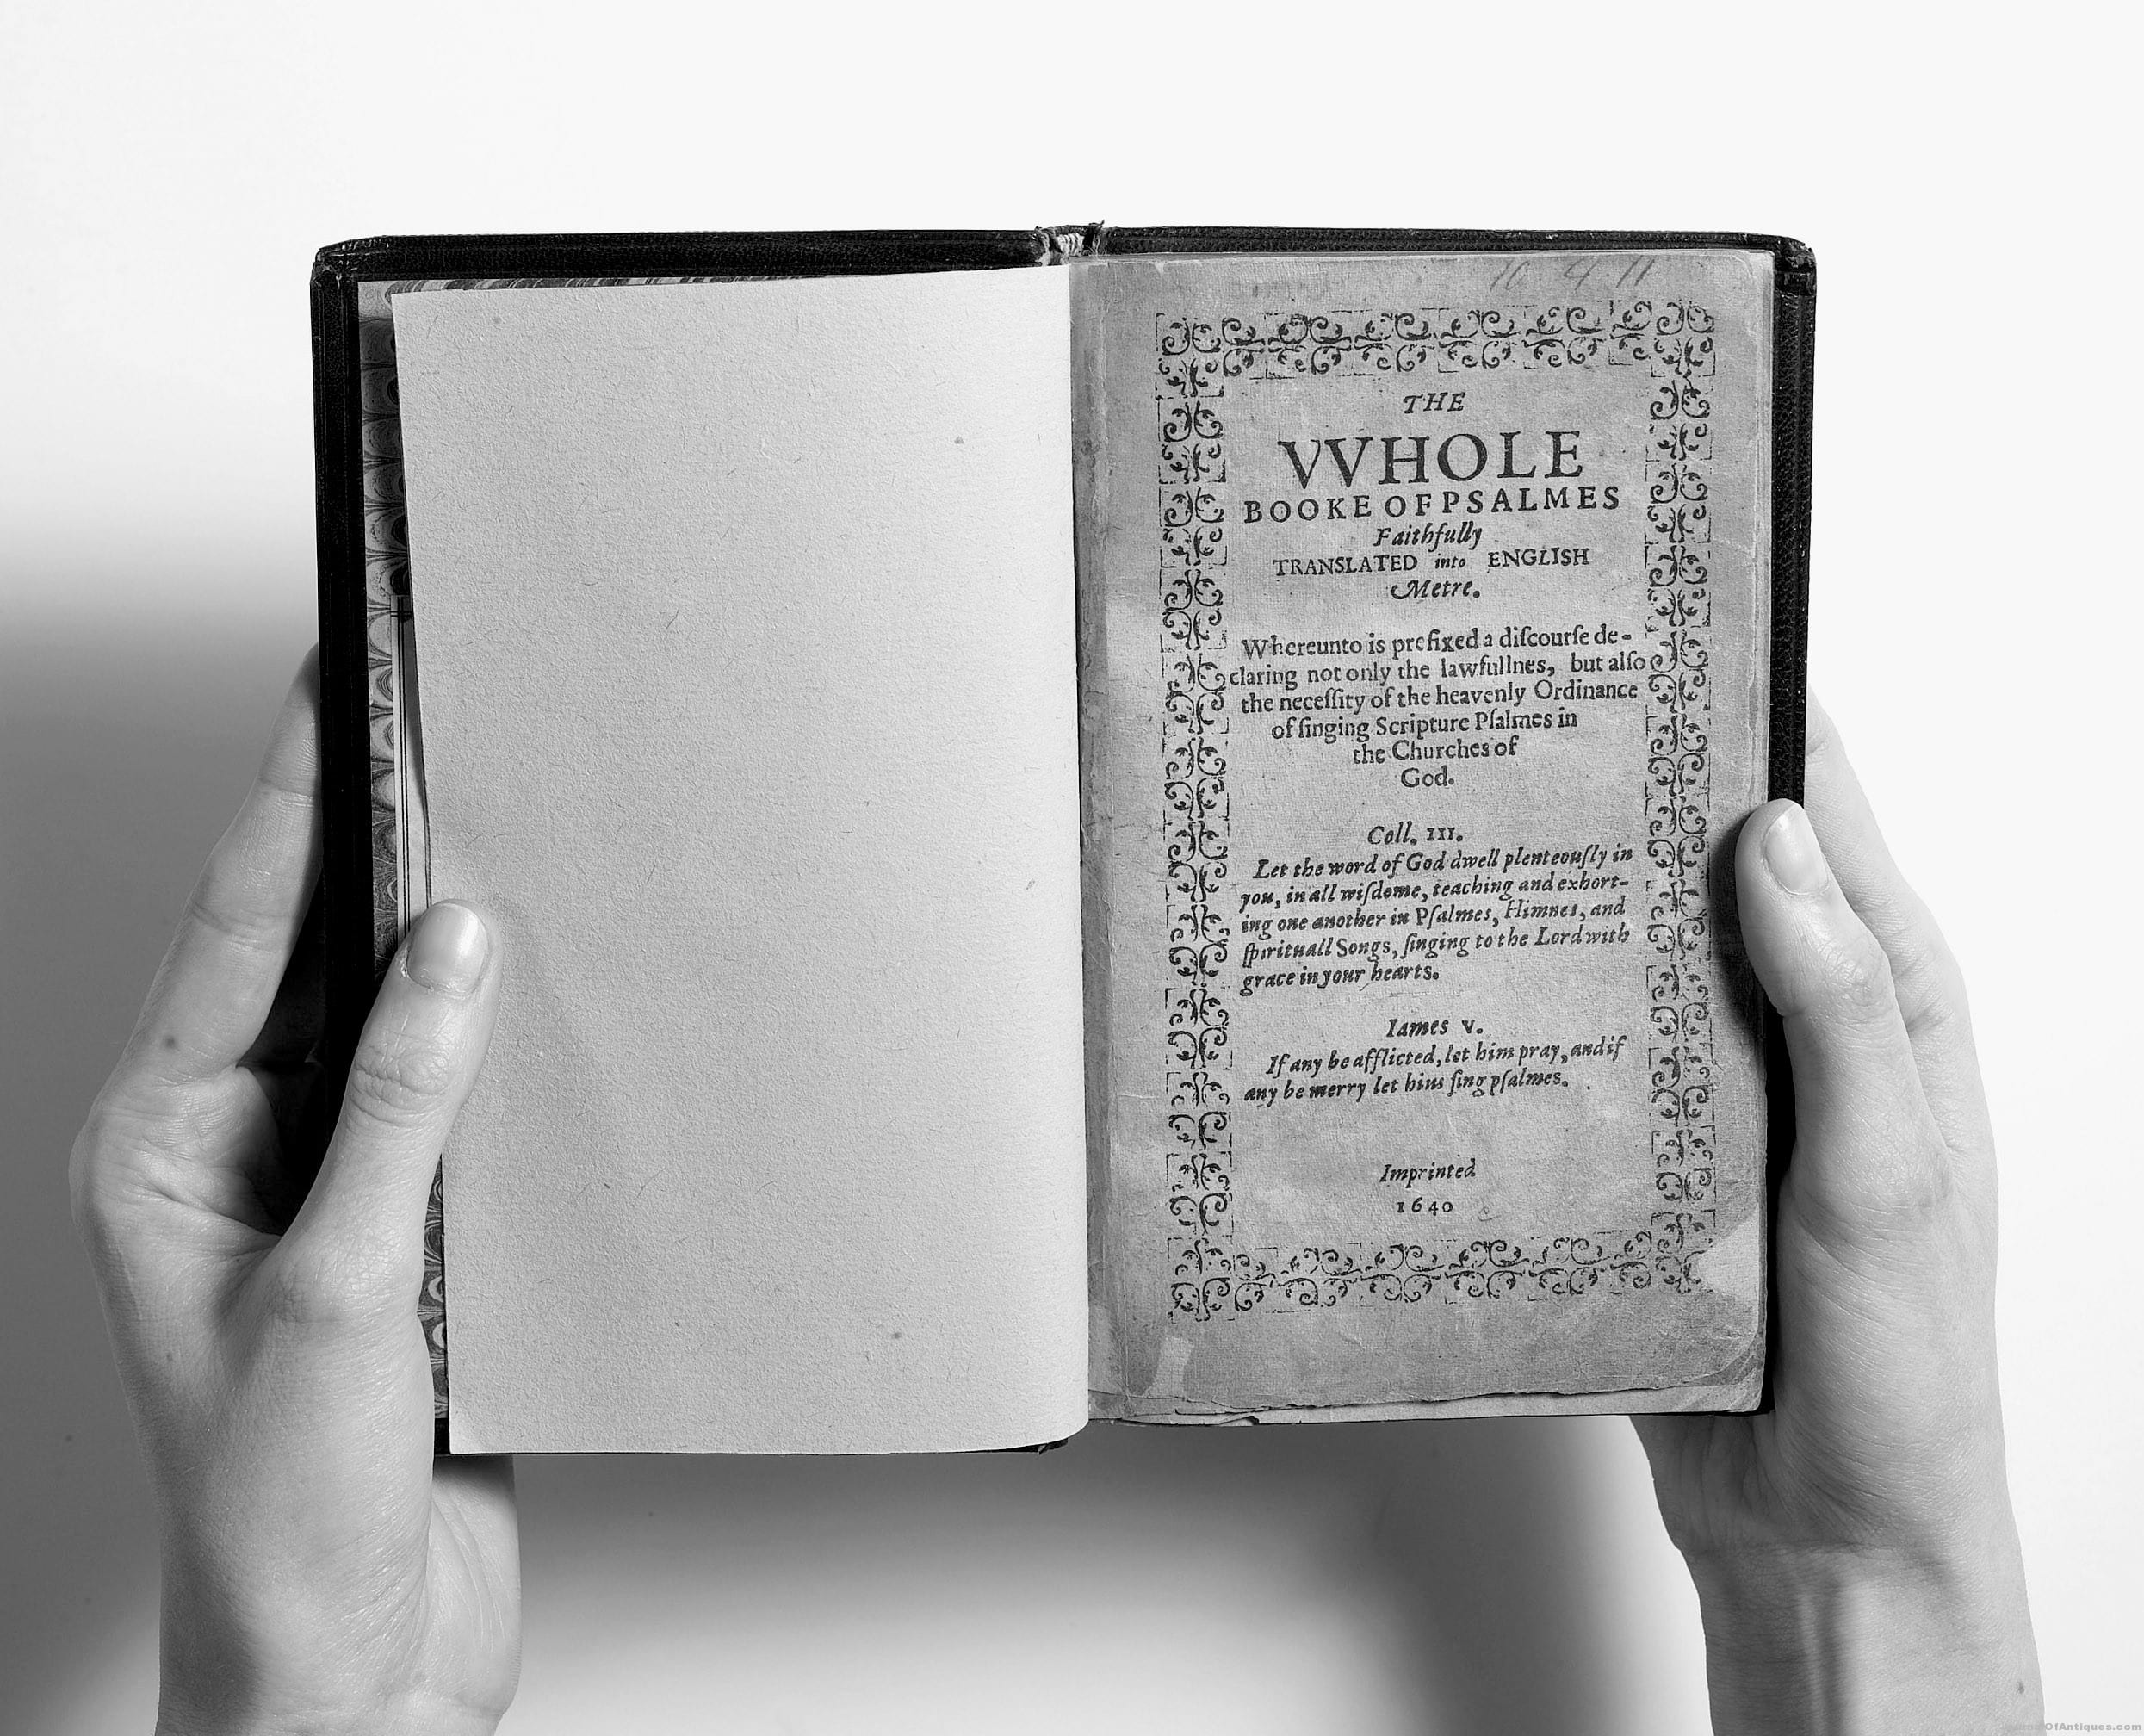 10 4 11
THE
VVHOLE
BOOKE OF PSALMES
Faithfully
TRANSLATED into ENGLISH
Metre.
Whereunto is prefixed a diſcourſe de-
claring not only the lawfullnes, but alſo
the neceſſity of the heavenly Ordinance
of ſinging Scripture Pſalmes in
the Churches of
God.
Coll. III.
Let the word of God dwell plenteouſly in
you, in all wiſdome, teaching and exhort-
ing one another in Pſalmes, Himnes, and
ſpirituall Songs, ſinging to the Lord with
grace in your hearts.
Iames V.
If any be afflicted, let him pray, and if
any be merry let him ſing pſalmes.
Imprinted
1640
OfAntiques.com